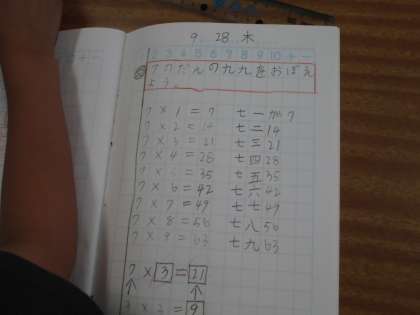 9. 28. 木
2 3 4 5 6 7 8 9 10 十 一
7のだんの九九をおぼえ
よう。
7 × 1 = 7 七一が7
7 × 2 = 14 七二14
7 × 3 = 21 七三21
7 × 4 = 28 七四28
7 × 5 = 35 七五35
7 × 6 = 42 七六42
7 × 7 = 49 七七49
7 × 8 = 56 七八56
7 × 9 = 63 七九63
7 × 3 = 21
× 2 = 9